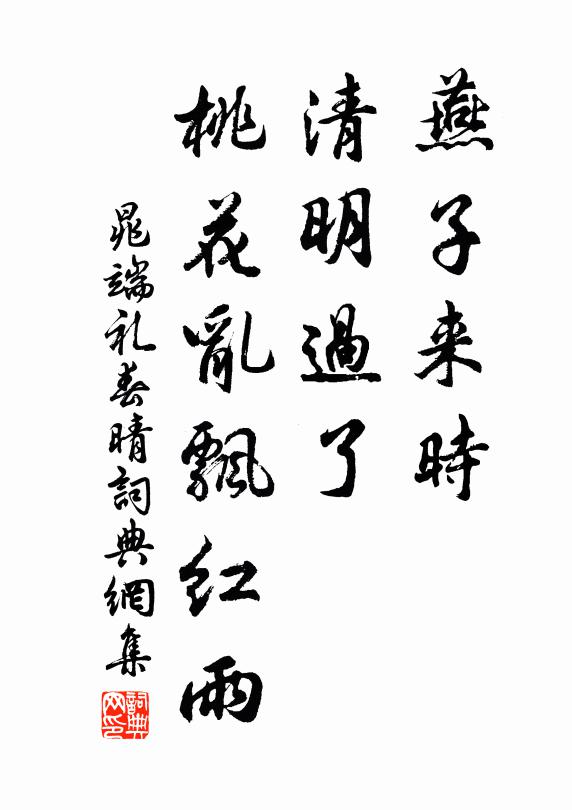 燕子来時
清明過了
桃花亂飄紅雨
晁端礼春晴詞典網集
詞典网印